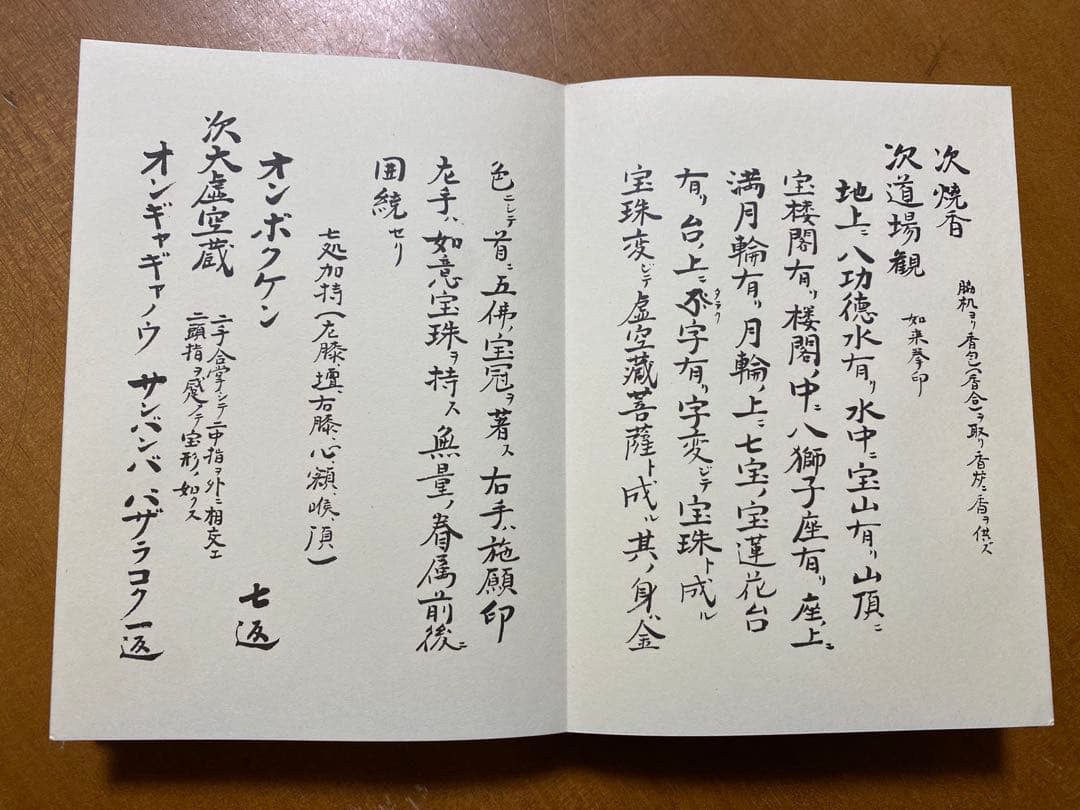 次焼香
脇机ヨリ香包(香合)ヲ取リ香炉ニ香ヲ供ズ
次道場観
如来拳印
地上ニ八功徳水有リ水中ニ宝山有リ山頂ニ
宝楼閣有リ楼閣ノ中ニ八獅子座有リ座ノ上ニ
満月輪有リ月輪ノ上ニ七宝ノ宝蓮花台
有リ台ノ上ニ字有リ字変ジテ宝珠ト成ル
タラク
宝珠変ジテ虚空蔵菩薩ト成ル其ノ身ハ金
色ニシテ首ニ五佛ノ宝冠ヲ著ス右手ハ施願印
左手ハ如意宝珠ヲ持ス無量ノ眷属前後ニ
囲繞セリ
七処加持(左膝、壇、右膝、心、額、喉、頂)
オンボクケン
七返
次大虚空蔵
二手合掌シテ二中指ヲ外ニ相交エ
二頭指ヲ蹙メテ宝形ノ如クス
オンギャギャノウ サンバンバ バザラコク 一返